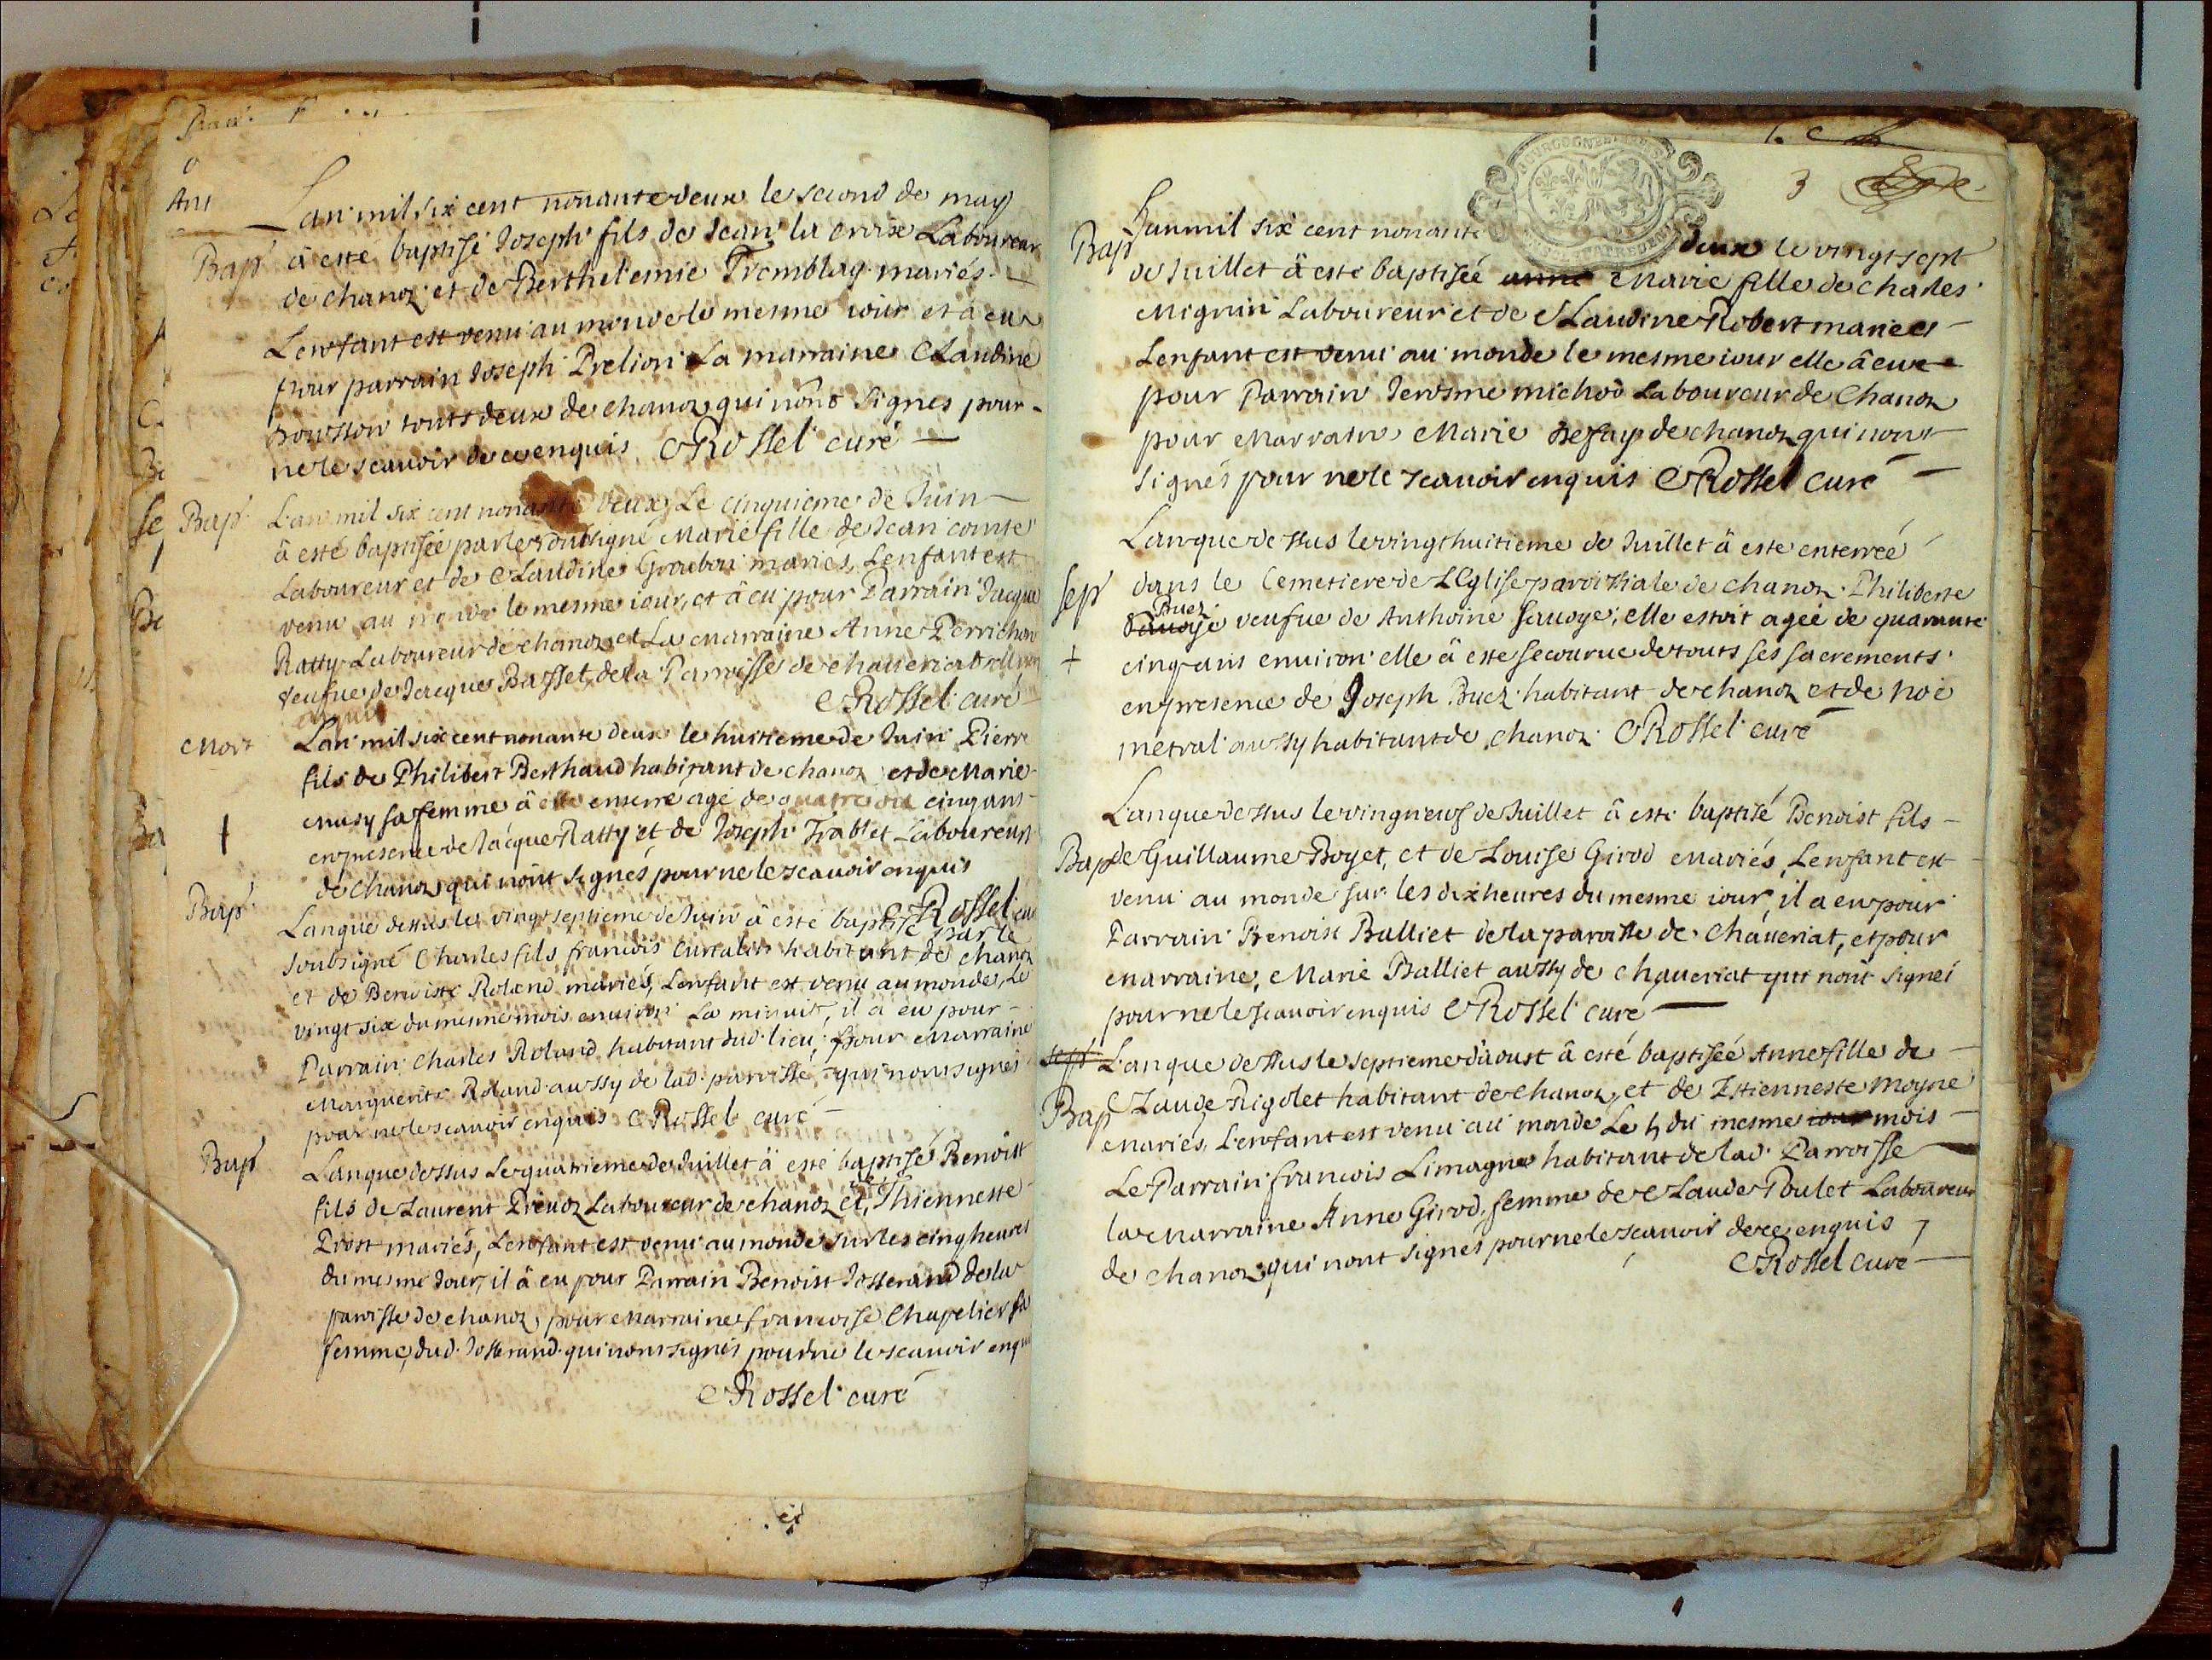 Lan mil six cent nonante deux le second de may
Bap à esté baptisé Joseph fils de Jean la croix Laboureur
de chanoz et de Berthelemie Tremblay mariés
Lenfant est venu au monde le mesme iour et à eu
pour parrain Joseph Prelion La marraine Claudine
touts deux de chanoz qui nont signes pour
ne le scauoir de ce enquis CRossel curé
Bap Lan mil six cent nonante deux, Le cinquieme de Juin
à esté baptisée par le soubsigné Marie fille de Jean comte
Laboureur et de Claudine mariés, Lenfant est
venu au monde le mesme iour, et à eu pour Parrain Jacque
Ratty Laboureur de chanoz et La Marraine Anne Perrichon
veufue de Jacque Basset de la Parroisse de chaueriat
enquis CRossel curé
Mort Lan mil six cent nonante deux le huitieme de Juin Pierre
fils de Philibert Berthaud habitant de chanoz et de Marie
Musy sa femme à esté enterré agé de quatre ou cinq ans
en presence de Jacque Ratty et de Joseph Trablet Laboureurs
de chanoz qui nont signés pour ne le scauoir enquis
CRossel curé
Bap Lan que dessus le vingt septieme de Juin à esté baptisé par le
soubsigné Charles fils francois Curtalin habitant de chanoz
et de Benoiste Roland mariés, Lenfant est venu au monde, Le
vingt six du mesme mois enuiron La minuit, il à eu pour
Parrain Charles Roland habitant dud. lieu, pour Marraine
Marguerite Roland aussy de lad. parroisse, qui nont signés
pour ne le scauoir enquis CRossel curé
Bap Lan que dessus Le quatrieme de Juillet à esté baptisé Benoist
fils de Laurent Preuoz Laboureur de chanoz et, Thiennette
Prost mariés, Lenfant est venu au monde sur les cinq heures
du mesme Jour, il à eu pour Parrain Benoist Josserand de la
parroisse de chanoz, pour Marraine francoise Chapelier sa
femme, dud. Josserand qui nont signés pour ne le scauoir enquis
CRossel curé
3
Bap Lan mil six cent nonante deux le vingt sept
de Juillet à esté baptisée anne Marie fille de charles
Mignin Laboureur et de Claudine Robert mariees
Lenfant est venu au monde le mesme iour elle à eue
pour Parrain Jerosme michod Laboureur de Chanoz
pour Marraine Marie Defay de chanoz qui nont
signés pour ne le scauoir enquis CRossel curé
Lan que dessus le vingt huitieme de Juillet à este enterreé
sep dans le Cemetiere de LEglise parroissiale de chanoz Philiberte
Buez
Sauoye veufue de Anthoine Sauoye, elle estoit ageé de quarante
+ cinq ans enuiron elle à este secourue de touts ses sacrements
en presence de Joseph Buez habitant de chanoz et de Noé
metral aussy habitant de chanoz CRossel curé
Lan que dessus le vingt neuf de Juillet à esté baptisé Benoist fils
Bap de Guillaume Boyet, et de Louise Girod Mariés, Lenfant est
venu au monde sur les dix heures du mesme iour, il a eu pour
Parrain Benoist Balliet de la paroisse de chaueriat, et pour
Marraine, Marie Balliet aussy de chaueriat qui nont signés
pour ne le scauoir enquis CRossel curé
sept Lan que dessus le septieme d'aoust à esté baptisée Anne fille de
Bap Claude Rigolet habitant de chanoz, et de Estiennette Moyne
Mariés, Lenfant est venu au monde Le 5 du mesme iour mois
Le Parrain francois Limagne habitant de lad. Parroisse
la Marraine Anne Girod, femme de Claude Poulet Laboureur
de chanoz, qui nont signes pour ne le scauoir de ce enquis
CRossel curé